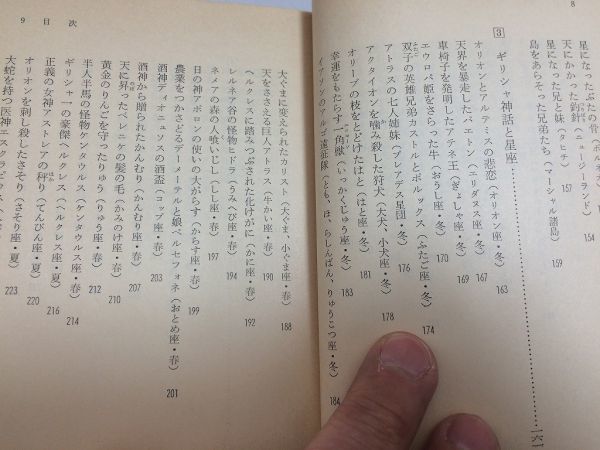 8
星になったぶたの骨
天にかかった釣針(ニュージーランド) 157
星になった兄と妹(タヒチ)
島をあらそった兄弟たち(マーシャル諸島) 159
3 ギリシャ神話と星座
オリオンとアルテミスの悲恋(オリオン座・冬) 163
天界を暴走したパエトン(エリダヌス座・冬) 167
車椅子を発明したアテネ王(ぎょしゃ座・冬) 169
エウロパ姫をさらった牛(おうし座・冬) 170
双子の英雄兄弟カストルとポルックス(ふたご座・冬) 174
アトラスの七人姉妹(プレアデス星団・冬) 176
アクタイオンを嚙み殺した狩犬(大犬、小犬座・冬) 178
オリーブの枝をとどけたはと(はと座・冬) 181
幸運をもたらす一角獣(いっかくじゅう座・冬) 183
イアソンのアルゴ遠征隊(とも、ほ、らしんばん、りゅうこつ座・冬) 184
9 目次
大ぐまに変えられたカリスト(大ぐま、小ぐま座・春) 188
天をささえる巨人アトラス(牛かい座・春) 190
ヘルクレスに踏みつぶされた化けがに(かに座・春) 192
レルネア谷の怪物ヒドラ(うみへび座・春) 194
ネメアの森の人喰いじし(しし座・春) 197
日の神アポロンの使いの大がらす(からす座・春) 199
農業をつかさどるデーメーテルと娘ペルセフォネ(おとめ座・春) 201
酒神ディオニュソスの酒盃(コップ座・春) 203
酒神から贈られたかんむり(かんむり座・春) 207
天に昇ったベレニケの髪の毛(かみのけ座・春) 210
黄金のりんごを守ったりゅう(りゅう座・春) 212
半人半馬の怪物ケンタウルス(ケンタウルス座・春)
ギリシャ一の豪傑ヘルクレス(ヘルクレス座・夏) 214
正義の女神アストレアの秤り(てんびん座・夏) 216
オリオンを刺し殺したさそり(さそり座・夏) 220
大蛇を持つ医神エスクラピウス 223